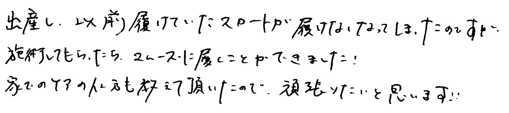 出産し、以前履けていたスカートが履けなくなってしまったのですが…
施術してもらったら、スムーズに履くことができました!
家でのケアの仕方も教えて頂いたので、頑張りたいと思います!!